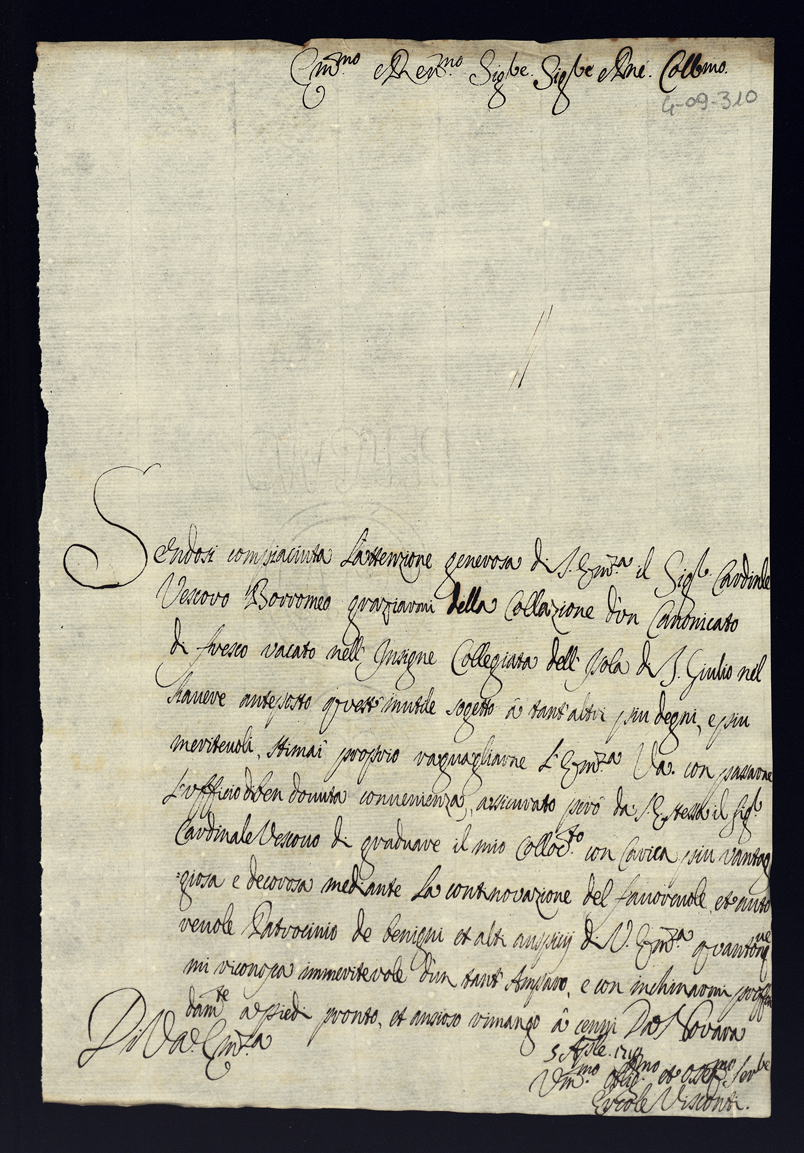 Em.mo e Rev.mo Sig.re Sig.re e Pne. Coll.mo
4-09-310
Sendosi compiaciuta l'attenzione generosa di S. Em.za il Sig.r Cardinale
Vescovo Borromeo graziarmi della Collazione d'un Canonicato
di fresco vacato nell' Insigne Collegiata dell' Isola di S. Giulio nel
havere anteposto quest' inutile sogetto à tant' altri piu degni, e piu
meriteuoli, stimai proprio raguagliarne l'Em.za Va. con passarne
l'ufficio di ben douuta conuenienza, assicurato però da S. E. stessa il Sig.r
Cardinale Vescouo di graduare il mio Colloc.to con Carica piu vantag
=giosa e decorosa mediante la continovazione del fauoreuole, et auto
reuole Patrocinio de benigni et alti auspicij di V. Em.za quantonque
mi riconosca immeritevole d'un tant' Amparo, e con inchinarmi proffon
dam.te a piedi pronto, et ansioso rimango à cenni Da Novara
5 Aple.
Di Va. Em.za
Um.mo et oss.mo Ser.re
Ercole Visconti.